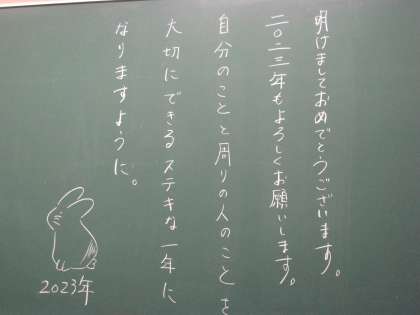 明けましておめでとうございます。
二〇二三年もよろしくお願いします。
自分のことと周りの人のことを
大切にできるステキな一年に
なりますように。
2023年